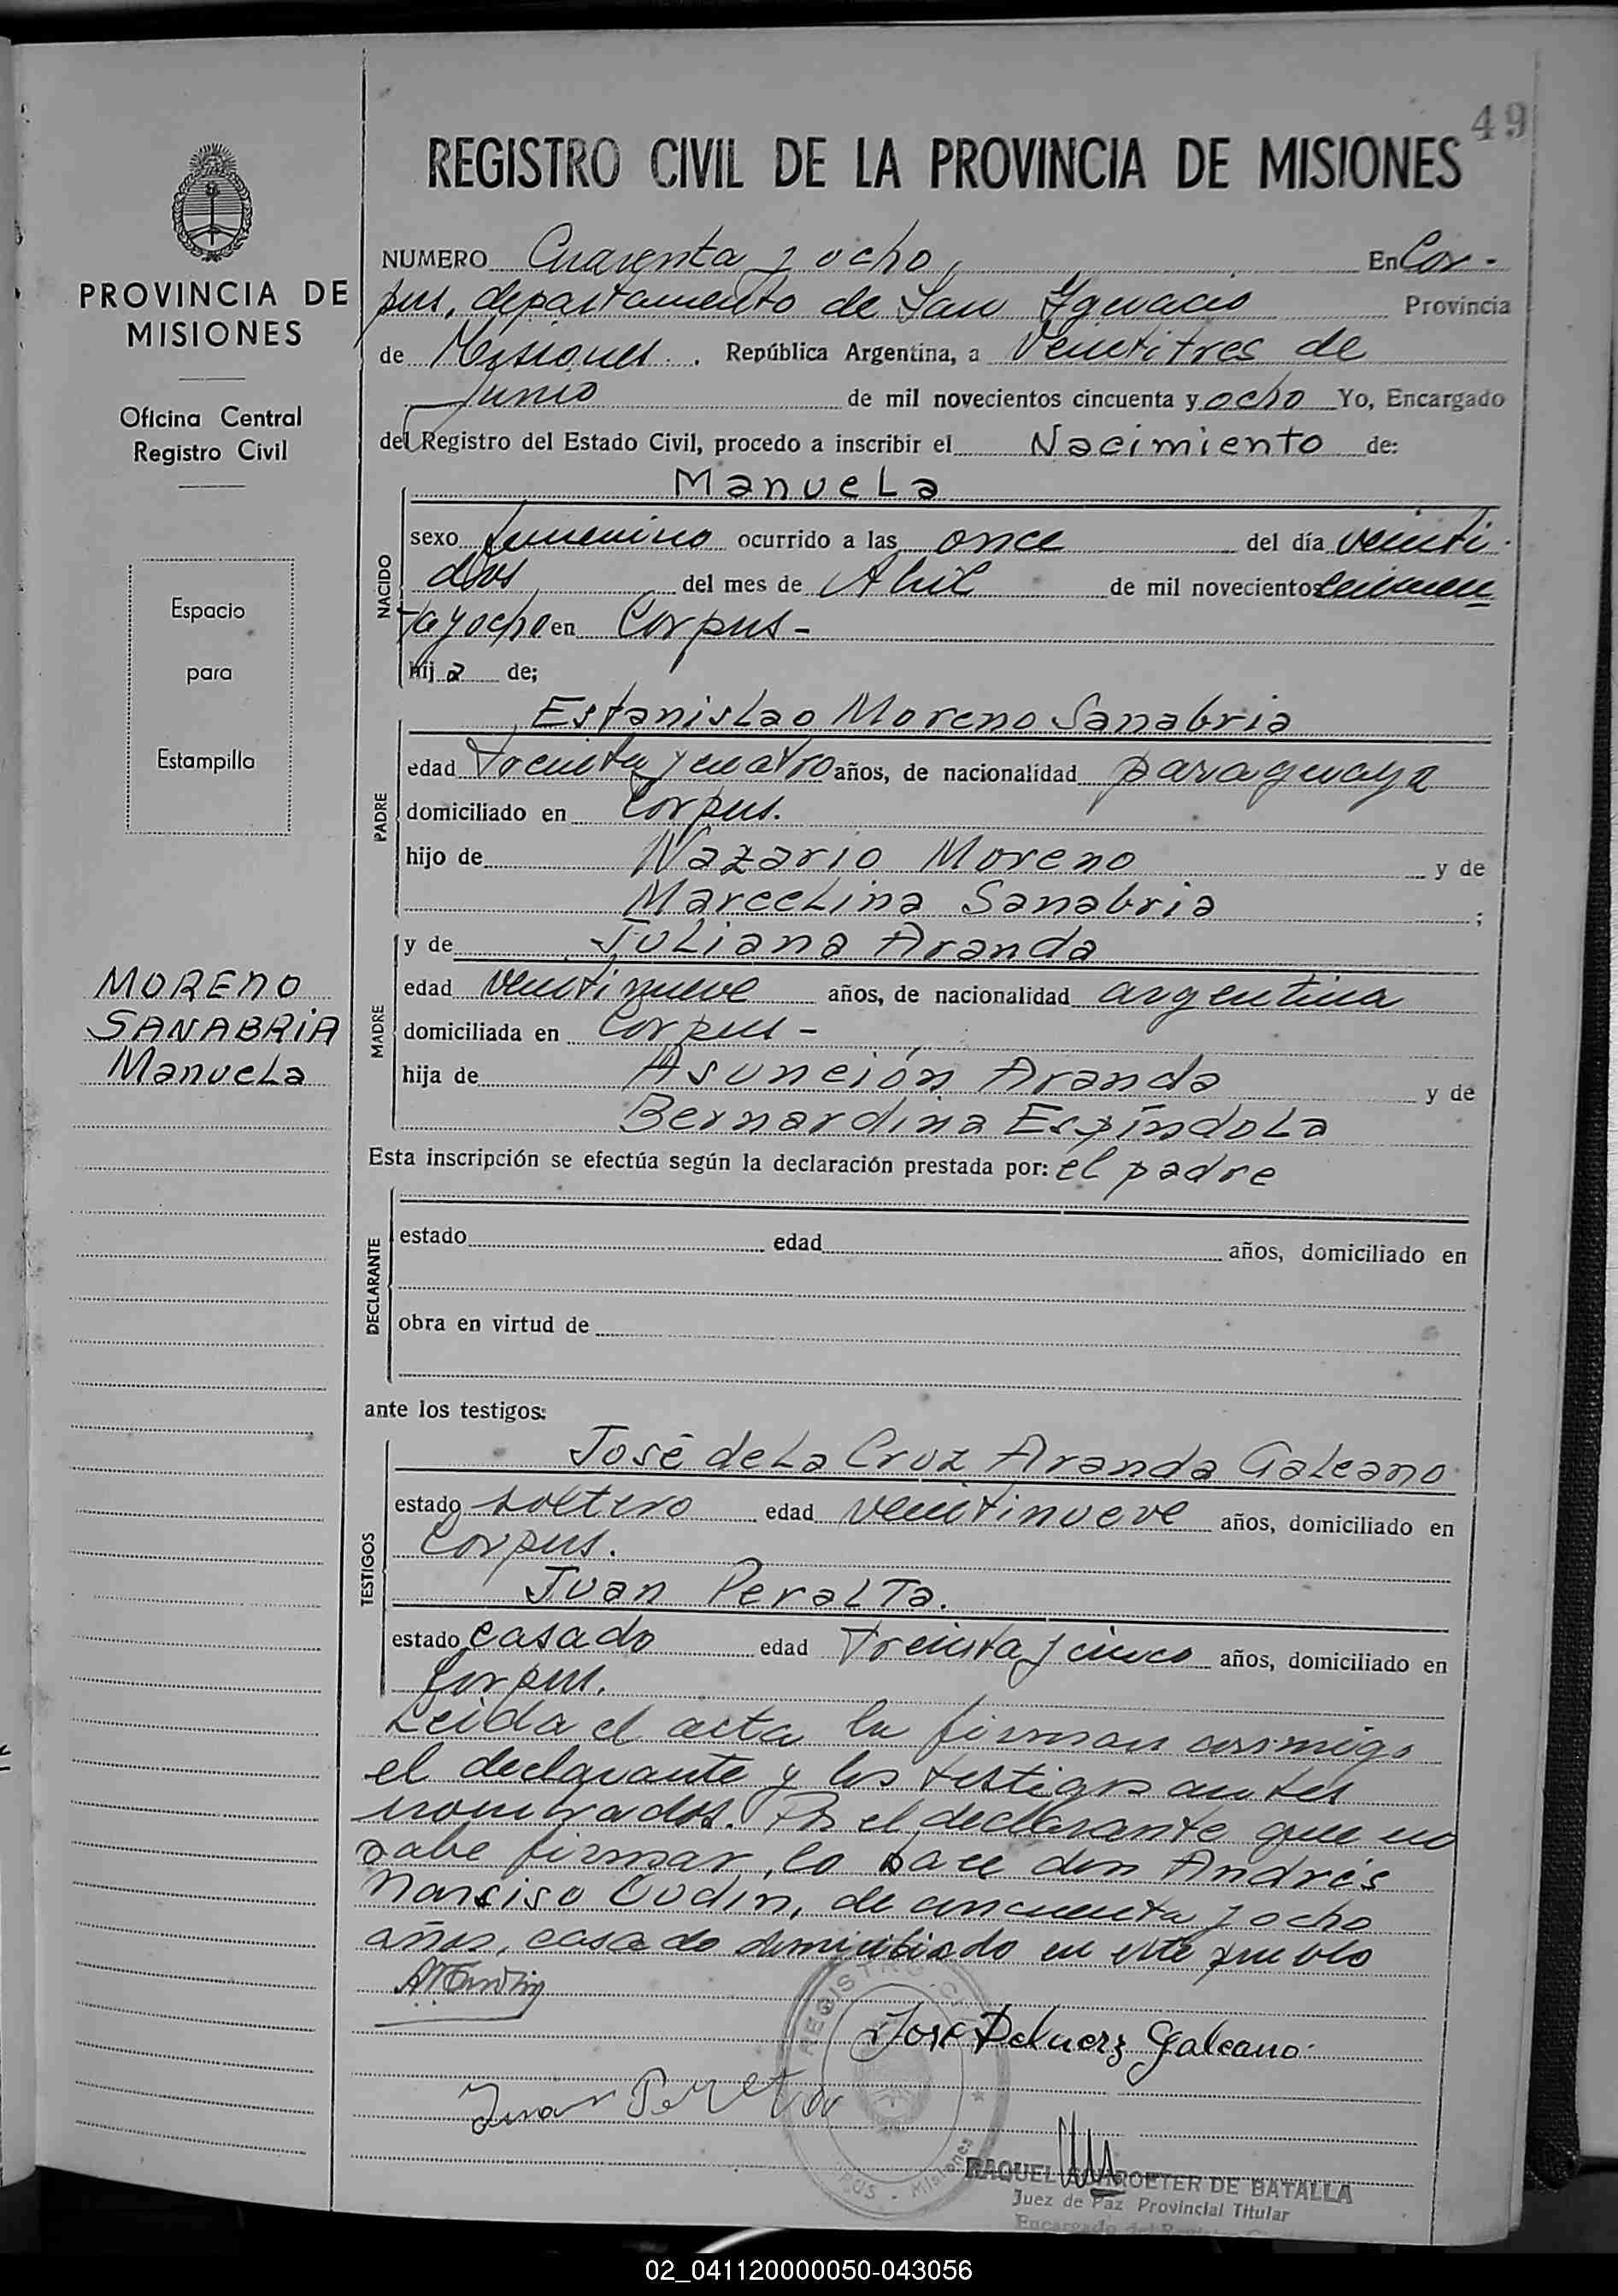 49
REGISTRO CIVIL DE LA PROVINCIA DE MISIONES
PROVINCIA DE
MISIONES
Oficina Central
Registro Civil
Espacio
para
Estampilla
MORENO
SANABRIA
Manuela
NUMERO Cuarenta y ocho, En Cor-
pus, departamento de San Ygnacio Provincia
de Misiones. República Argentina, a Veintitres de
Junio de mil novecientos cincuenta y ocho Yo, Encargado
del Registro del Estado Civil, procedo a inscribir el Nacimiento de:
Manuela
NACIDO
sexo femenino ocurrido a las once del día veinti-
dos del mes de Abril de mil novecientos cincuen
ta y ocho en Corpus-
hija de;
Estanislao Moreno Sanabria
PADRE
edad treinta y cuatro años, de nacionalidad paraguaya
domiciliado en Corpus.
hijo de Nazario Moreno y de
Marcelina Sanabria ;
y de Juliana Aranda
MADRE
edad veintinueve años, de nacionalidad argentina
domiciliada en Corpus-
hija de Asunción Aranda y de
Bernardina Espíndola
Esta inscripción se efectúa según la declaración prestada por: el padre
DECLARANTE
estado edad años, domiciliado en
obra en virtud de
ante los testigos:
José de La Cruz Aranda Galeano
TESTIGOS
estado soltero edad veintinueve años, domiciliado en
Corpus.
Juan Peralta.
estado casado edad treinta y cinco años, domiciliado en
Corpus.
Leida el acta la firman conmigo
el declarante y los testigos antes
nombrados. Por el declarante que no
sabe firmar, lo hace don Andrés
Narciso Oudin, de cincuenta y ocho
años, casado domiciliado en este pueblo
José Delacruz Galeano
Juan Peralta
REGISTRO
Misiones
RAQUEL SCHROETER DE BATALLA
Juez de Paz Provincial Titular
Encargado del
02_041120000050-043056